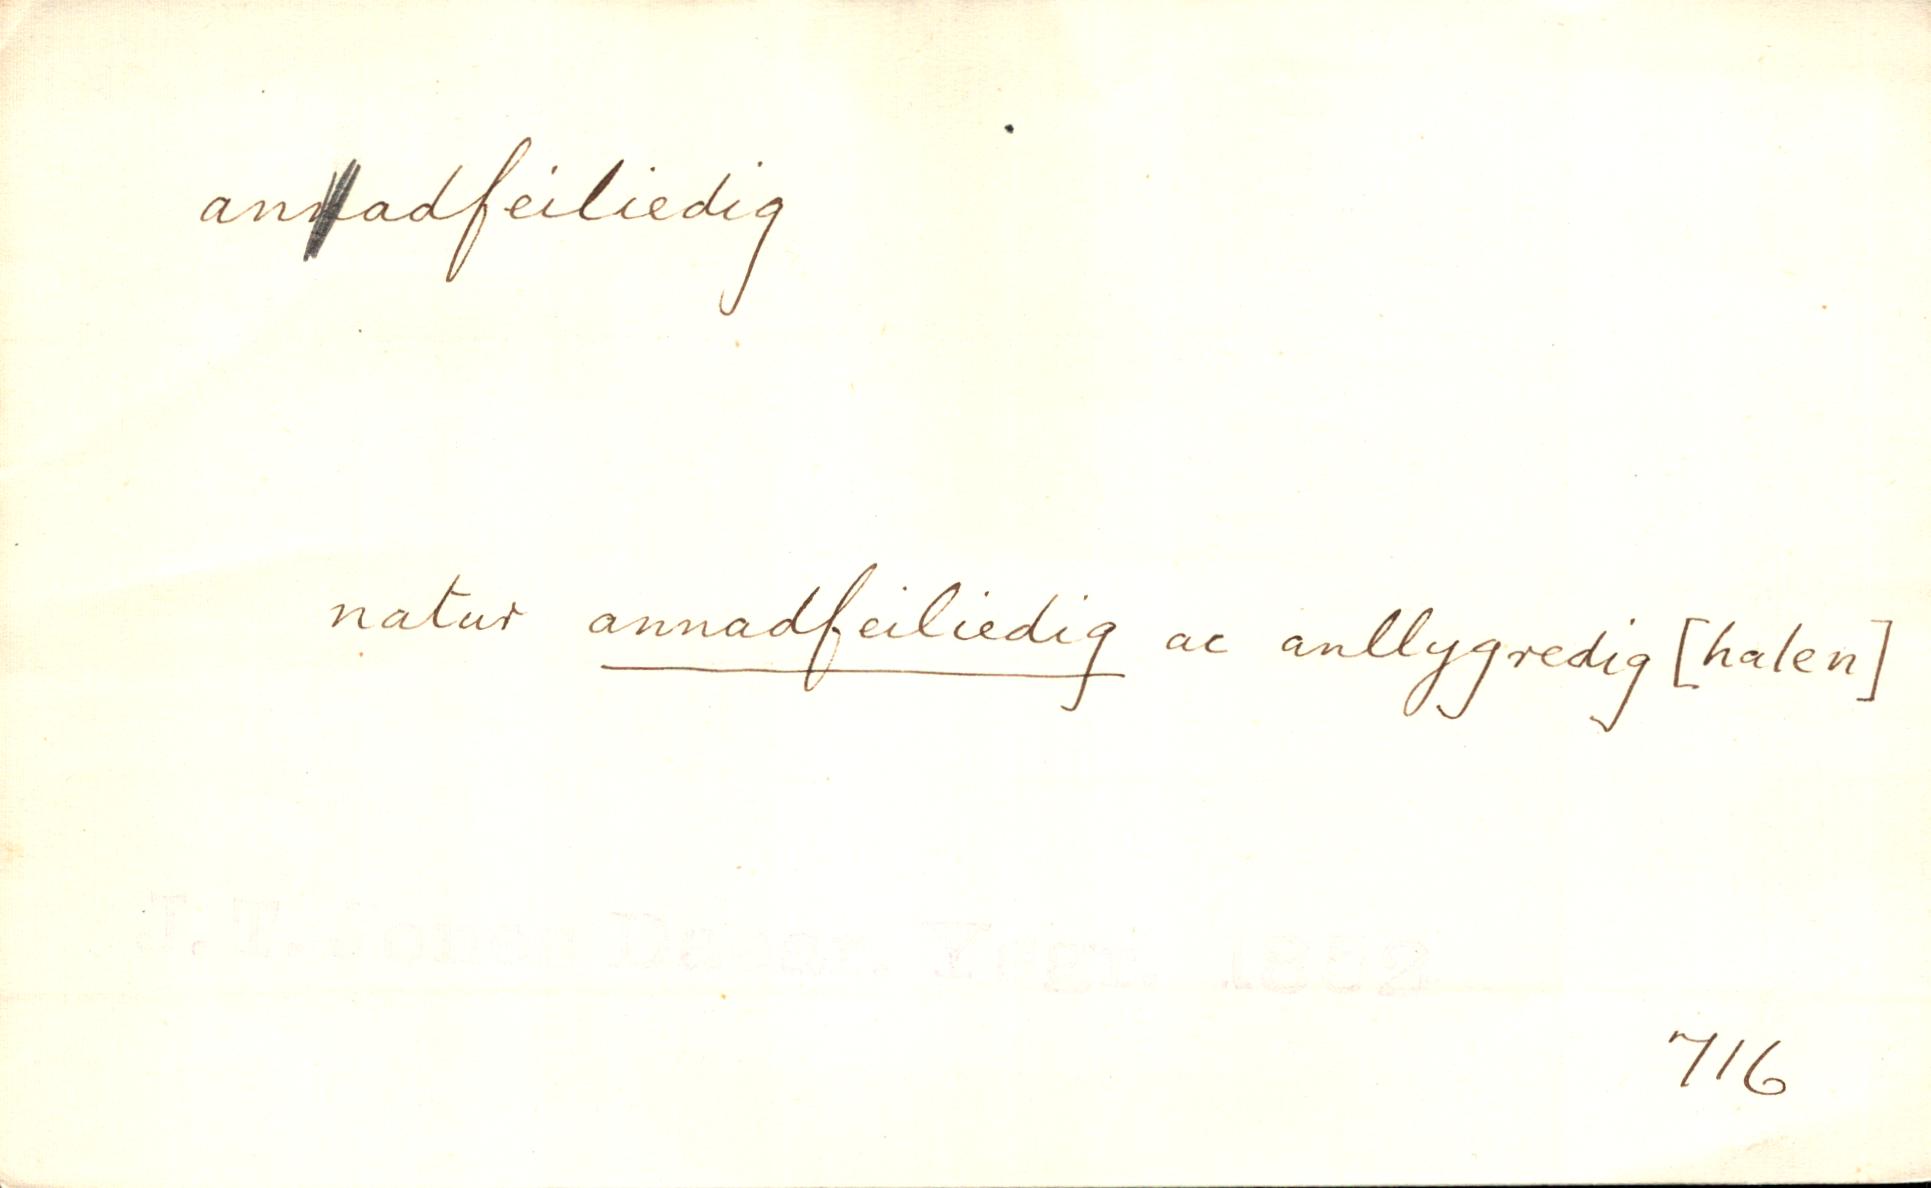 anadfeiliedig
natur annadfeiliedig ac anllygredig [halen]
J. T. Jones
716